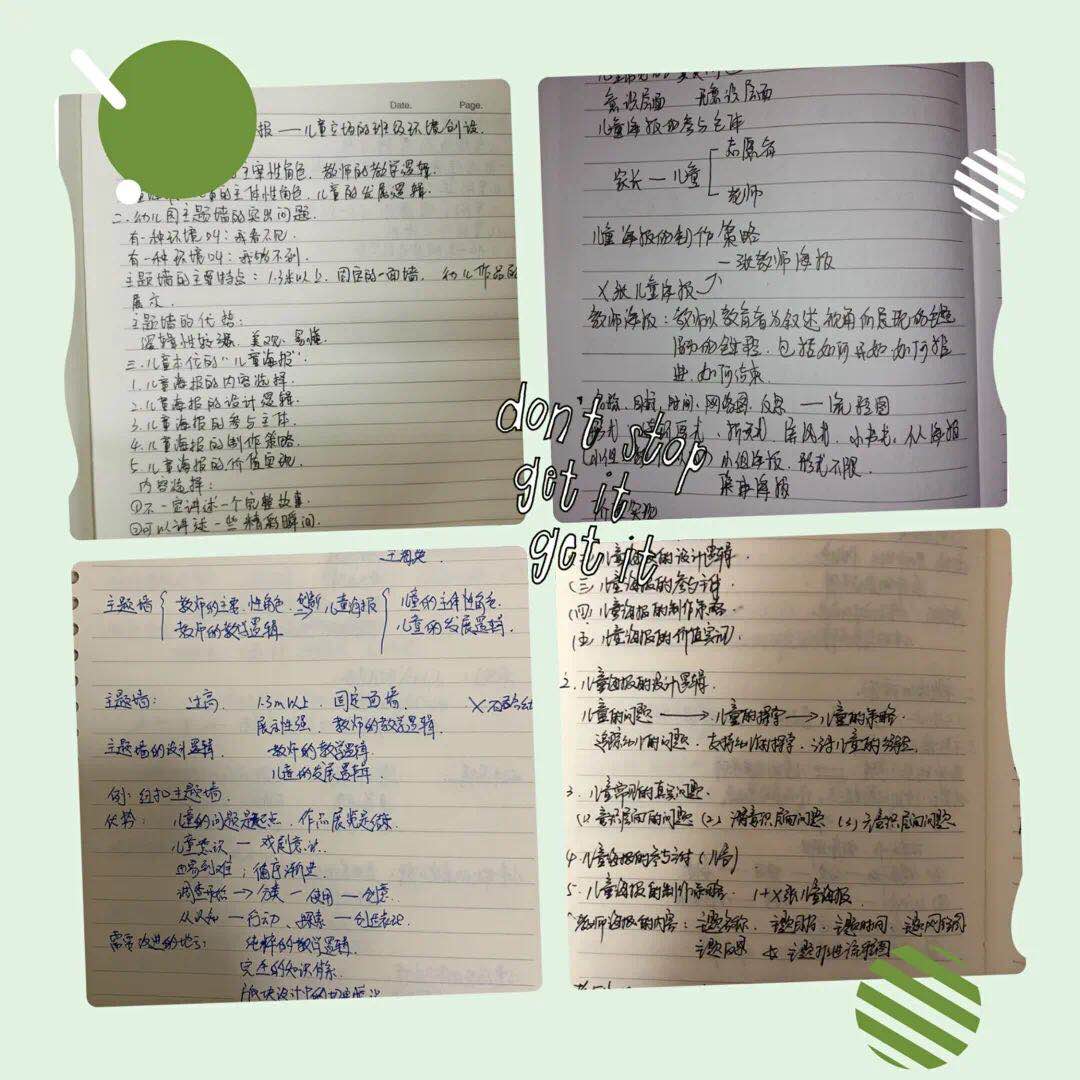 Date. Page.
报——儿童立场的班级环境创设.
主宰性角色, 教师的教学逻辑.
的主体性角色, 儿童的发展逻辑.
二. 幼儿园主题墙的突出问题.
有一种环境叫: 我看不见.
有一种环境叫: 我够不到.
主题墙的主要特点: 1.3米以上, 固定的一面墙, 幼儿作品的
展示.
主题墙的优势:
逻辑性较强、美观、易懂.
三. 儿童本位的“儿童海报”.
1. 儿童海报的内容选择.
2. 儿童海报的设计逻辑.
3. 儿童海报的参与主体.
4. 儿童海报的制作策略.
5. 儿童海报的价值实现.
内容选择:
①不一定讲述一个完整故事.
②可以讲述一些精彩瞬间.
意识层面 无意识层面
儿童海报的参与主体
志愿者
家长—儿童
老师
儿童海报的制作策略
一张教师海报
X张儿童海报
教师海报: 教师以教育者为叙述视角所展现的主题
活动的全过程, 包括如何开始, 如何推
进, 如何结束.
名称、目标、时间、网络图、反思 — 流程图
折页式、屏风式、小书式、个人海报
小组海报, 形式不限.
集体海报
don't stop
get it
get it
主题墙 教师的主宰性角色, 儿童海报 儿童的主体性角色
教师的教学逻辑 儿童的发展逻辑.
主题墙: 过高, 1.3m以上, 固定一面墙,
展示性强, 教师的教学逻辑
主题墙的设计逻辑 教师的教学逻辑
儿童的发展逻辑.
例: 纽扣主题墙.
优势: 儿童的问题是起点, 作品展览是
儿童意识 —
由易到难, 循序渐进
调查体验 → 分类 — 使用 — 创造
从认知 — 行动、探索 — 创造表达
需要改进的地方: 纯粹的教学逻辑.
完整的知识体系
版块设计中的
儿童海报的设计逻辑
(三) 儿童海报的参与主体.
(四) 儿童海报的制作策略
(五) 儿童海报的价值实现.
2. 儿童海报的设计逻辑.
儿童的问题 → 儿童的探究 → 儿童的策略.
追踪幼儿的问题, 支持幼儿的探究, 儿童的经验.
3. 儿童常见的真实问题.
(1) 意识层面的问题 (2) 潜意识层面问题 (3) 无意识层面问题
4. 儿童海报的参与主体 (儿童)
5. 儿童海报的制作策略. 1+X张儿童海报.
教师海报的内容: 主题名称、主题目标、主题时间、主题网络图
主题反思 主题推进流程图